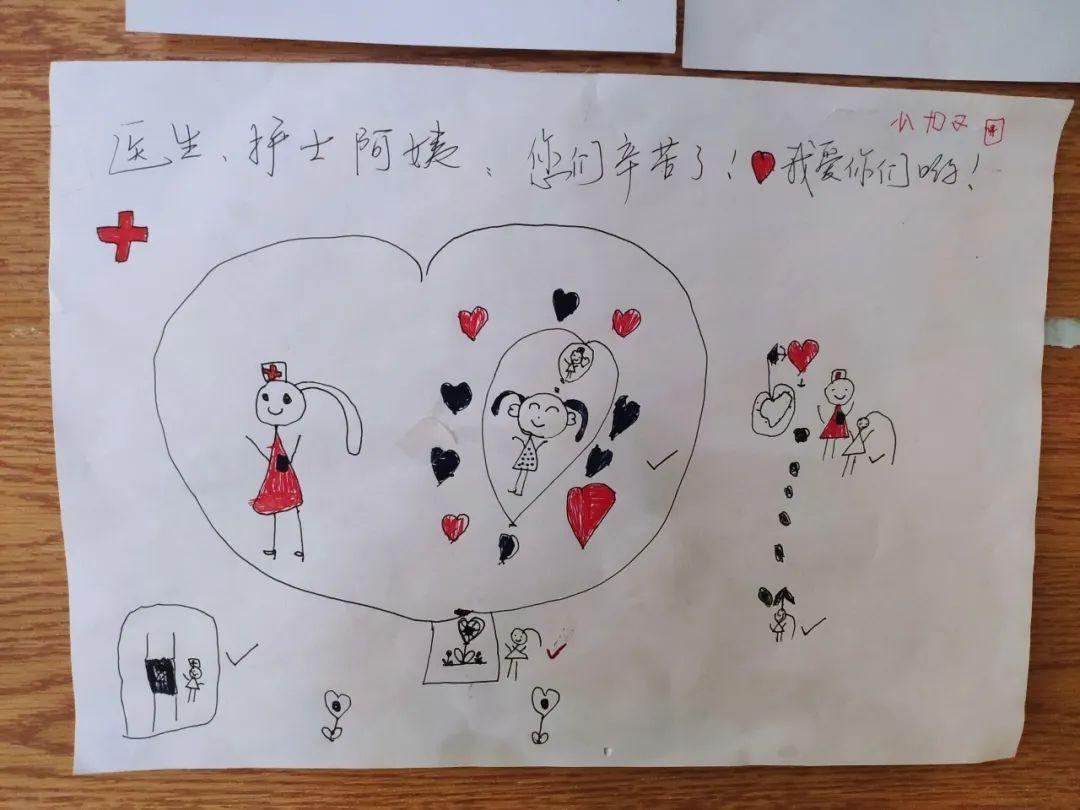 医生、护士阿姨、您们辛苦了！我爱你们哟！